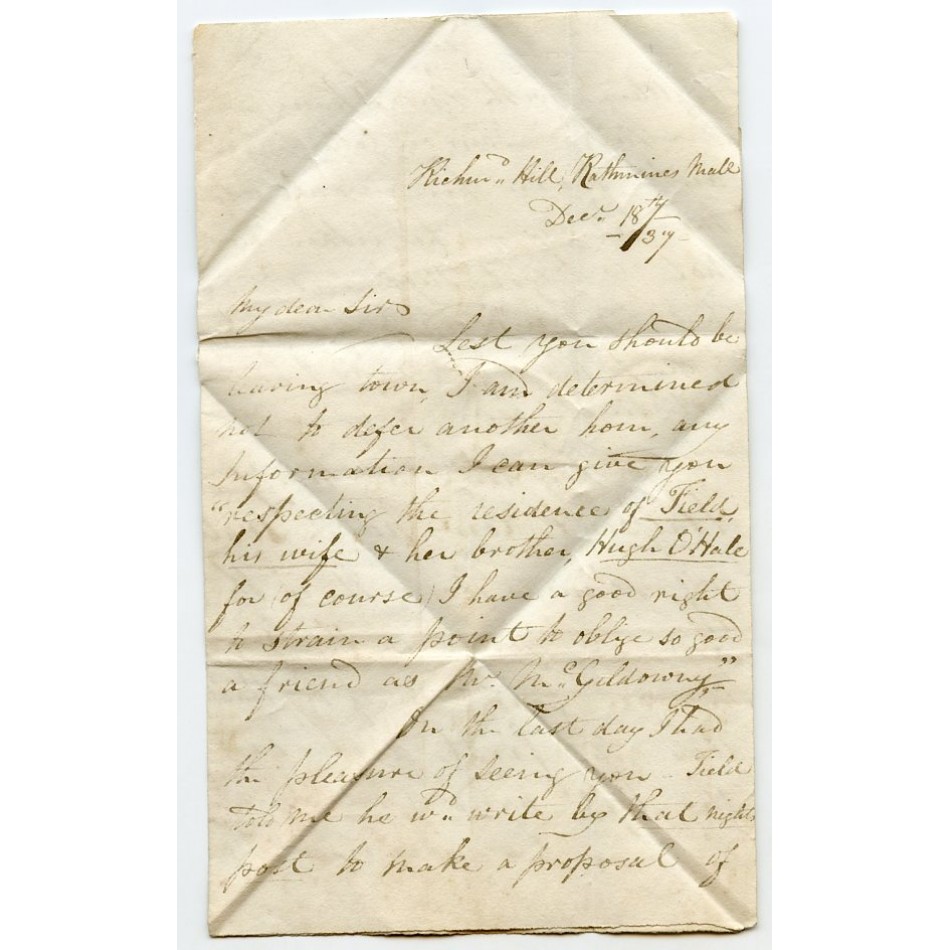 Richmd. Hill, Rathmines Mall
Decr. 18th
/37
My dear Sir
Lest you should be
leaving town, I am determined
not to defer another hour, any
information I can give you
"respecting the residence of Field,
his wife & her brother, Hugh O'Hale
for (of course) I have a good right
to strain a point to oblige so good
a friend as Mr. McGildowny"
On the last day I had
the pleasure of seeing you - Field
told me he wd. write by that night's
post to make a proposal of